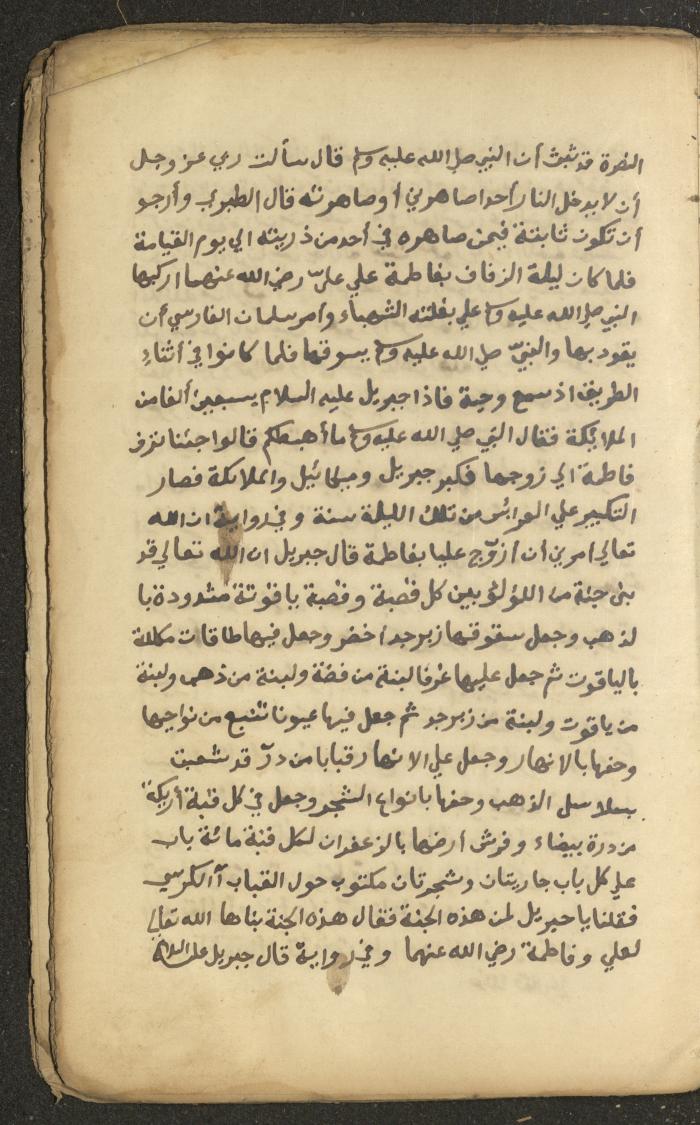 النضرة قد ثبت أن النبي صلى الله عليه وسلم قال سألت ربي عز وجل
أن لا يدخل النار أحدا صاهرني أو صاهرته قال الطبري وأرجو
أن تكون ثابتة فيمن صاهره في أحد من ذريته الي يوم القيامة
فلما كان ليلة الزفاف بفاطمة علي عليّ رضي الله عنهما اركبها
النبي صلى الله عليه وسلم علي بغلته الشهباء وأمر سلمان الفارسي أن
يقود بها والنبيّ صلى الله عليه وسلم يسوقها فلما كانوا في أثناءِ
الطريق اذ سمع وجبة فاذا جبريل عليه السلام بسبعين ألفا من
الملائكة فقال النبي صلى الله عليه وسلم ما أهبطكم قالوا جئنا نزف
فاطمة الي زوجها فكبر جبريل وميكائيل والملائكة فصار
التكبير علي العرائس من تلك الليلة سنة وفي رواية ان الله
تعالي امرني أن أزوّج عليا بفاطمة قال جبريل ان الله تعالي قد
بنى جنة من اللؤلؤ بين كل قصبة وقصبة ياقوتة مشدودة با
لذهب وجعل سقوفها زبرجدا خضر وجعل فيها طاقات مكللة
بالياقوت ثم جعل عليها غرفا لبنة من فضة ولبنة من ذهب ولبنة
من ياقوت ولبنة من زبرجد ثم جعل فيها عيونا تنبع من نواحيها
وحفها بالانهار وجعل علي الانهار قبابا من درّ قد شعبت
بسلاسل الذهب وحفها بانواع الشجر وجعل في كل قبة أريكة
من درة بيضاء وفرش أرضها بالزعفران لكل قبة مائة باب
علي كل باب جاريتان وشجرتان مكتوب حول القباب آ الكرسي
فقلنا يا جبريل لمن هذه الجنة فقال هذه الجنة بناها الله تعالي
لعلي وفاطمة رضي الله عنهما وفي رواية قال جبريل عليه السلام